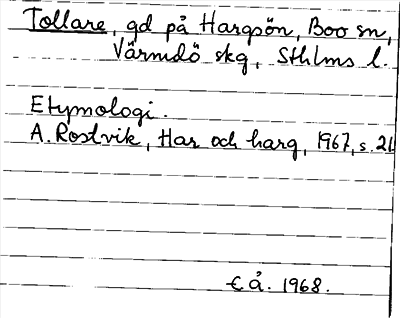 Tollare, gd på Hargsön, Boo sn,
Värmdö skg, Sthlms l.
Etymologi.
A. Rostvik, Har och harg, 1967, s. 21
€ Å. 1968.